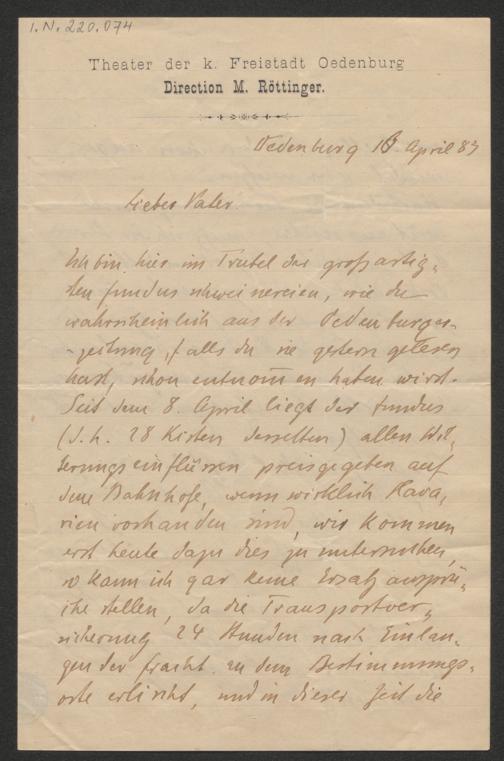 I.N. 220.074
Theater der k. Freistadt Oedenburg
Direction M. Röttinger.
Oedenburg 16 April 83
Lieber Vater!
Ich bin hier im Trubel der großartig-
sten fundus schweinereien, wie du
wahrscheinlich aus der Oedenburger-
-zeitung, falls du sie gestern gelesen
hast, schon entnom̄en haben wirst.
Seit dem 8. April liegt der fundus
(d. h. 28 Kisten desselben) allen Wit-
terungseinflüssen preisgegeben auf
dem Bahnhofe, wenn wirklich Hava-
rien vorhanden sind, wir kommen
erst heute dazu dies zu untersuchen,
so kann ich gar keine Ersatzansprü-
che stellen, da die Transportver-
sicherung 24 Stunden nach Einlan-
gen der fracht an dem Bestimmungs-
orte erlischt, und in dieser Zeit die